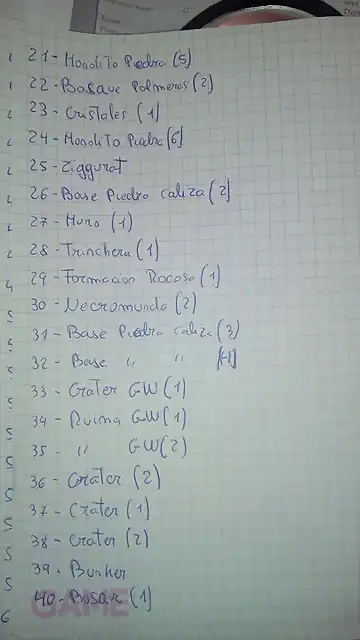 21- Monolito Piedra (5)
22-Bosque Palmeras (2)
23- Cristales (1)
24- Monolito Piedra (6)
25- Ziggurat
26- Base Piedra caliza (2)
27- Muro (1)
28- Trinchera (1)
29- Formacion Rocosa (1)
30- Necromunda (2)
31- Base Piedra caliza (3)
32- Base " "
33- Crater GW (1)
34- Ruina GW (1)
35- " GW (2)
36- Crater (2)
37- Crater (1)
38- Crater (2)
39- Bunker
40- Bosque (1)
GAME